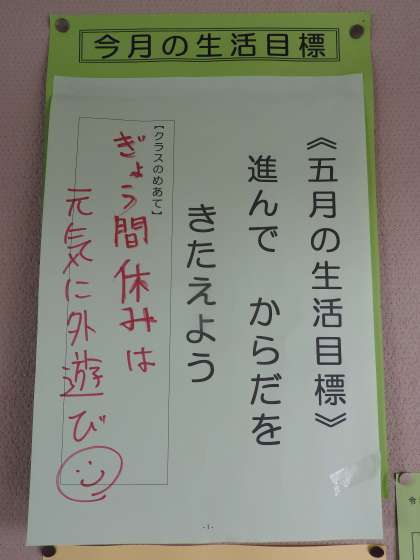 今月の生活目標
《五月の生活目標》
進んで からだを
きたえよう
【クラスのめあて】
ぎょう間休みは
元気に外遊び
- 1 -